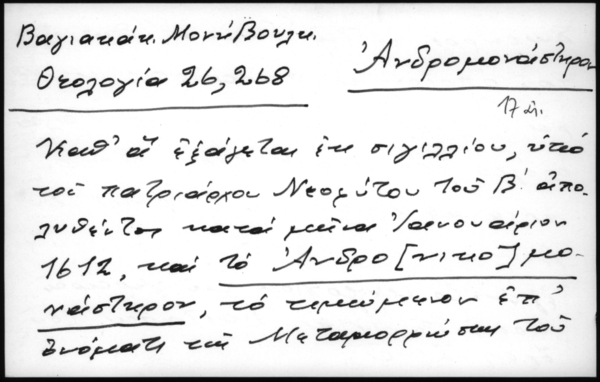 Βαγιακάκ. Μονὴ Βουλκ.
Θεολογία 26, 268
Ἀνδρομονάστηρον
17 αἰ.
Καθ' ἃ ἐξάγεται ἐκ σιγιλλίου, ὑπὸ
τοῦ πατριάρχου Νεοφύτου τοῦ Β΄ ἀπο-
λυθέντος κατὰ μῆνα Ἰανουάριον
1612, καὶ τὸ Ἀνδρο[νικο]μο-
νάστηρον, τὸ τιμώμενον ἐπ'
ὀνόματι τῆς Μεταμορφώσεως τοῦ